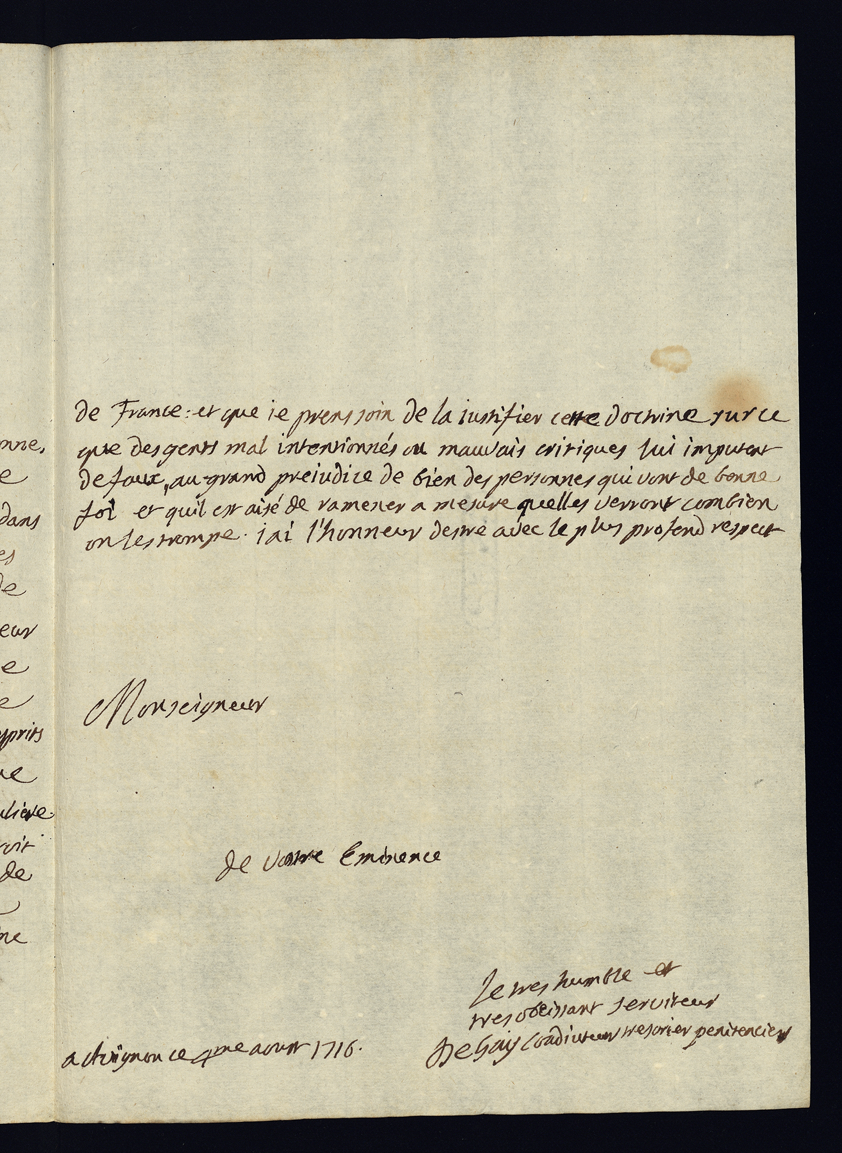 nne,
e
dans
es
de
eur
e
e
esprits
ne
uliere
roit
de
me
de France: et que je prens soin de la justifier cette doctrine sur ce
que des gents mal intentionnés ou mauvais critiques lui imputent
de faux, au grand prejudice de bien des personnes qui vont de bonne
foi et quil est aisé de ramener a mesure quelles verront combien
on les trompe. jai l'honneur destre avec le plus profond respect
Monseigneur
de votre Eminence
le tres humble et
tres obeissant serviteur
coadiuteur tresorier penitencier
a Avignon ce 4me aoust 1716.